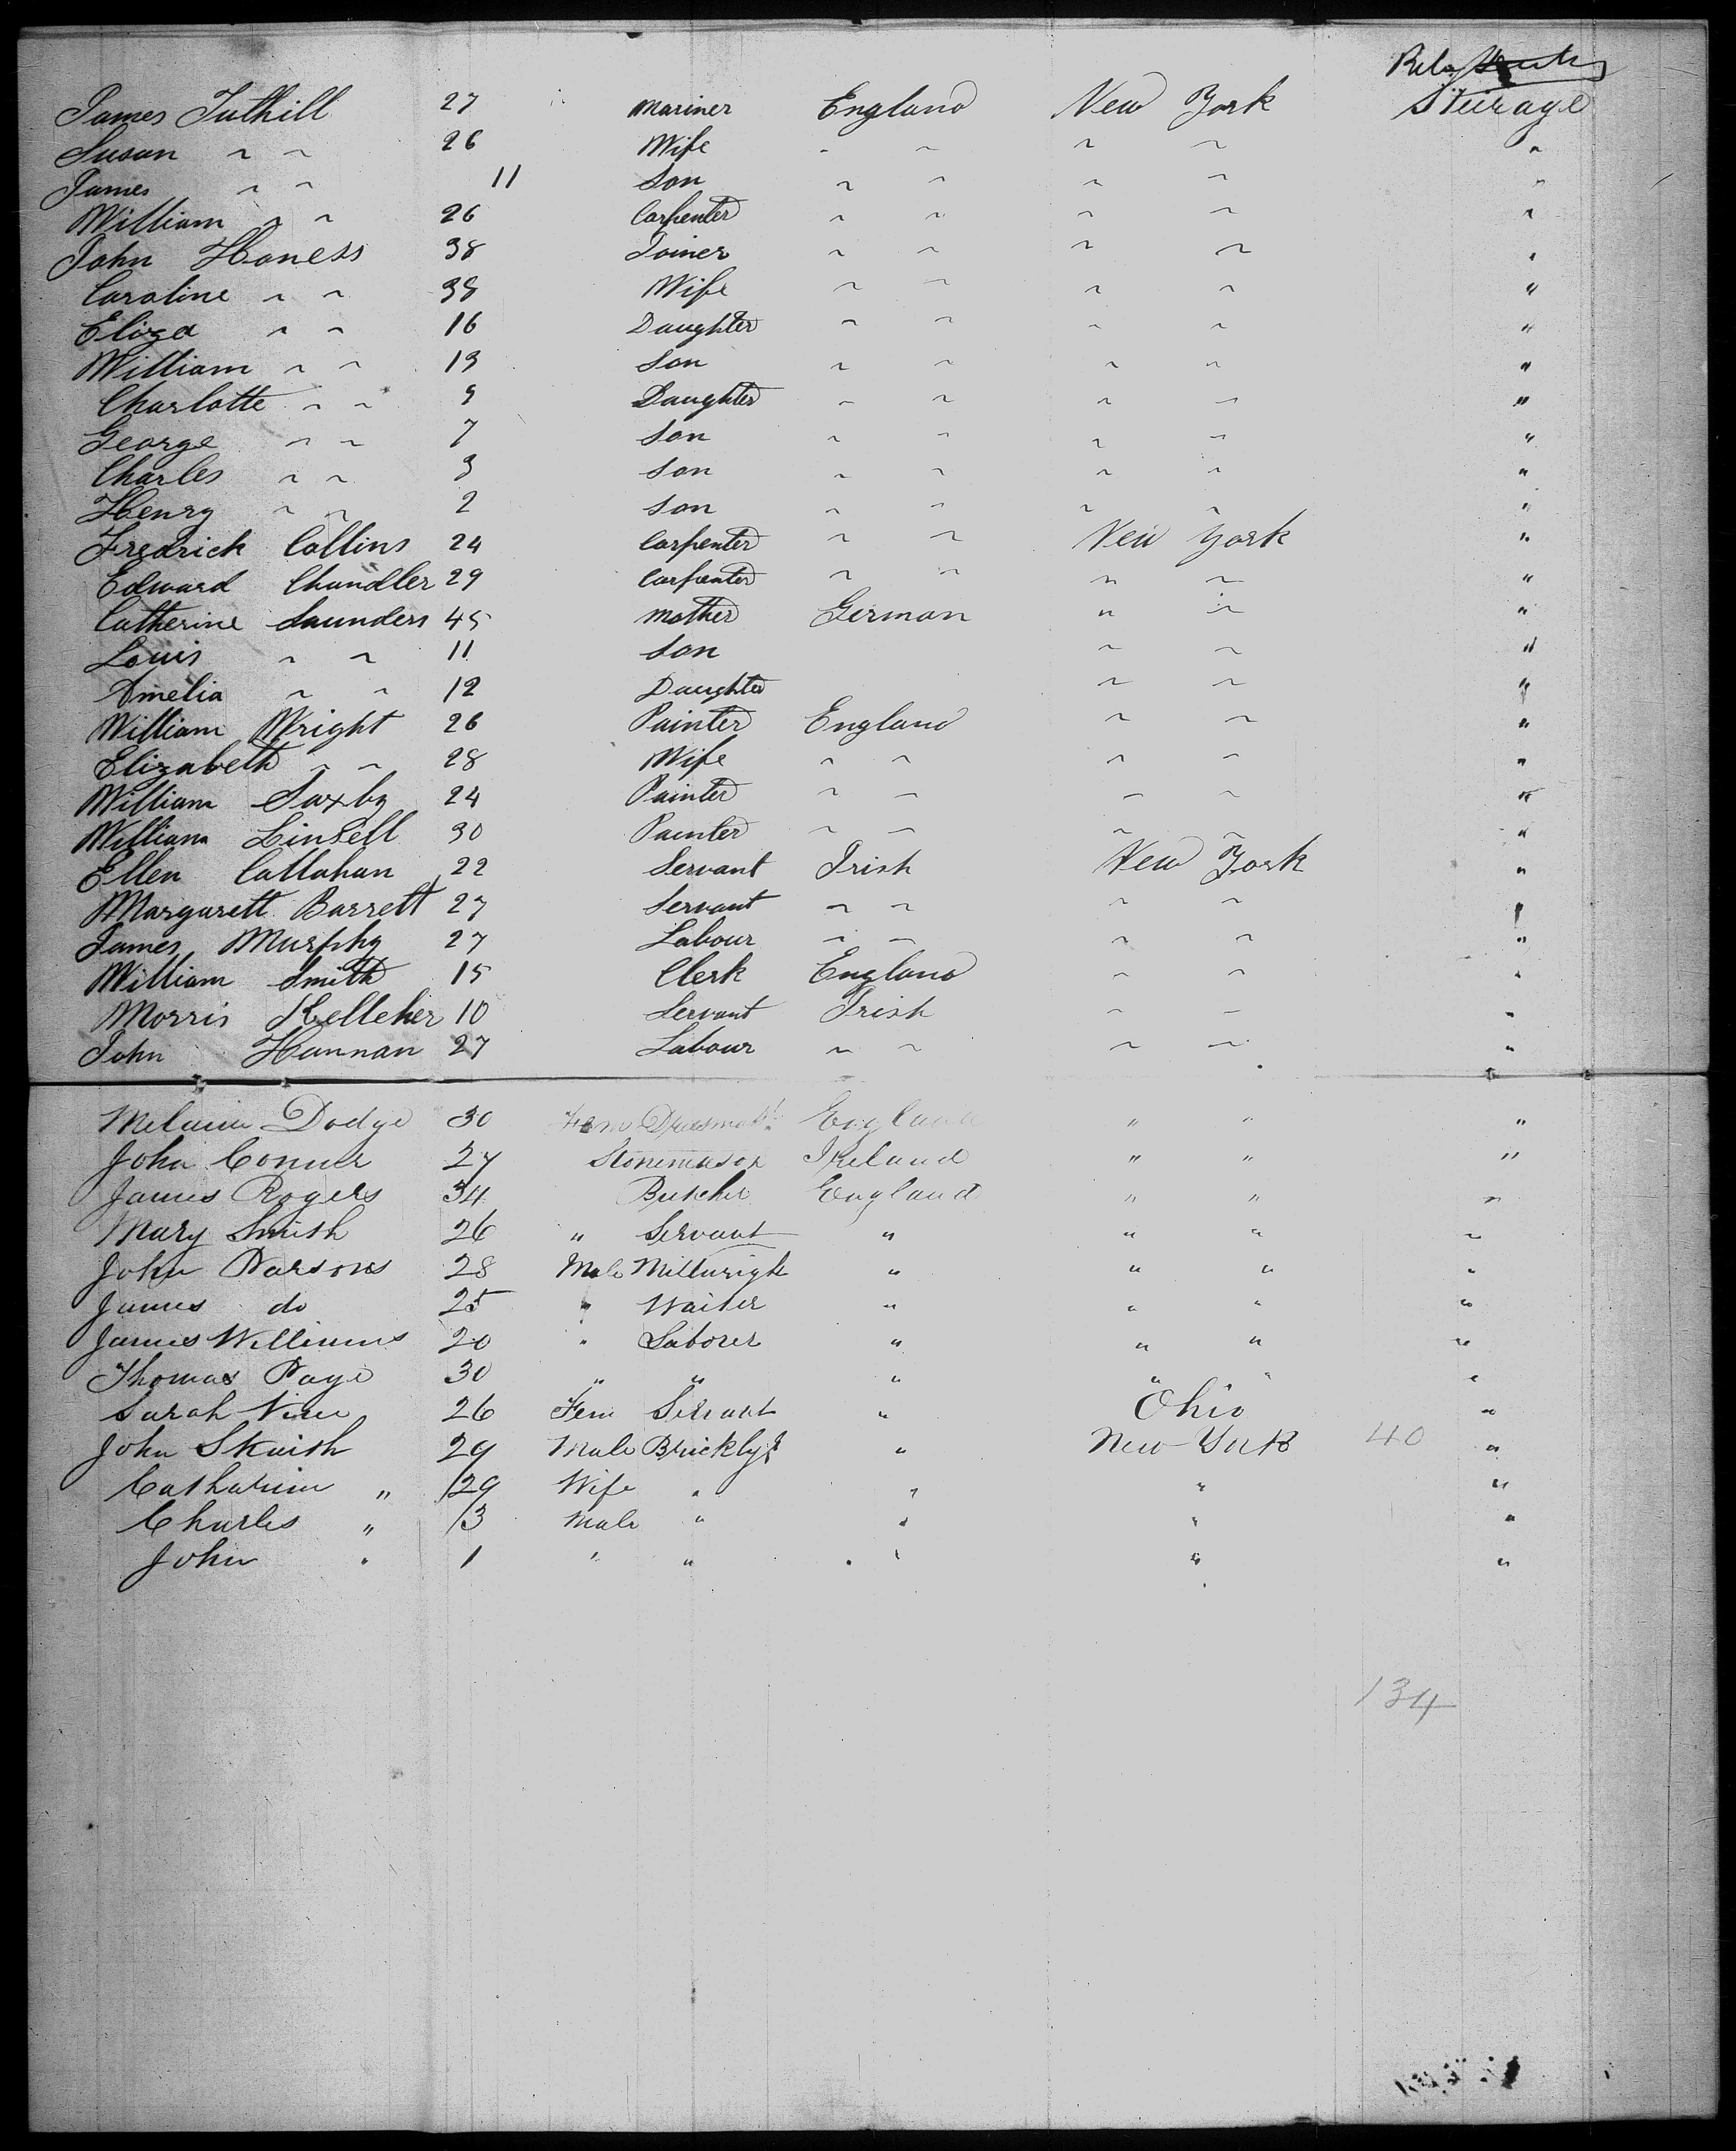 Steurage
James Tuthill 27 Mariner England New York
Susan ~ ~ 26 Wife ~ ~ ~ ~ "
James ~ ~ 11 Son ~ ~ ~ ~ "
William ~ ~ 26 Carpenter ~ ~ ~ ~ "
John Honess 38 Joiner ~ ~ ~ ~ "
Caroline ~ ~ 38 Wife ~ ~ ~ ~ "
Eliza ~ ~ 16 Daughter ~ ~ ~ ~ "
William ~ ~ 13 Son ~ ~ ~ ~ "
Charlotte ~ ~ 9 Daughter ~ ~ ~ ~ "
George ~ ~ 7 Son ~ ~ ~ ~ "
Charles ~ ~ 3 Son ~ ~ ~ ~ "
Henry ~ ~ 2 Son ~ ~ ~ ~ "
Fredrick Collins 24 Carpenter ~ ~ New York "
Edward Chandler 29 Carpenter ~ ~ " ~ "
Catherine Saunders 45 Mother German " ~ "
Louis ~ ~ 11 Son ~ ~ "
Amelia ~ ~ 12 Daughter ~ ~ "
William Wright 26 Painter England ~ ~ "
Elizabeth ~ ~ 28 Wife ~ ~ ~ ~ "
William Saxby 24 Painter ~ ~ ~ ~ "
William Linsell 30 Painter ~ ~ ~ ~ "
Ellen Callahan 22 Servant Irish New York "
Margarett Barrett 27 Servant ~ ~ ~ ~ "
James Murphy 27 Labour ~ ~ ~ ~ "
William Smith 15 Clerk England ~ ~ "
Morris Kelleher 10 Servant Irish ~ ~ "
John Hannan 27 Labour ~ ~ ~ ~ "
Dodge 30 Fem Dressmak England " " "
John Conner 27 Stonemason Ireland " " "
James Rogers 34 Butcher England " " "
Mary Smith 26 " Servant " " " "
John Parsons 28 Male Millwright " " " "
James do 25 " Waiter " " " "
James Williams 20 " Laborer " " " "
Thomas Page 30 " " " " " "
Sarah 26 Fem Servant " Ohio "
John 29 Male Bricklyr " New York 40 "
Catharine " 29 Wife " " " "
Charles " 3 Male " " " "
John " 1 " " " " "
134